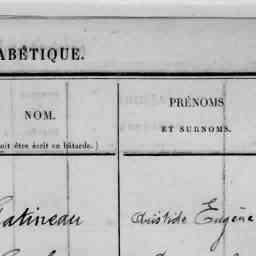 ABÉTIQUE.
NOM.
oit être écrit en bâtarde.)
PRÉNOMS
ET SURNOMS.
Gatineau
Aristide Eugène